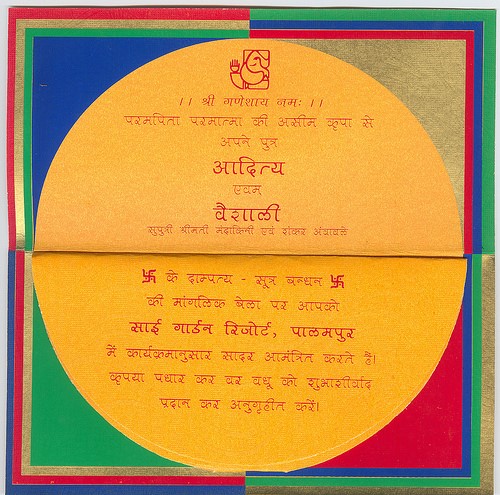 ।। श्री गणेशाय नमः ।।
परमपिता परमात्मा की असीम कृपा से
अपने पुत्र
आदित्य
एवम्
वैशाली
सुपुत्री श्रीमती मंदाकिनी एवं शंकर अंबावले
卐 के दाम्पत्य - सूत्र बन्धन 卐
की मांगलिक बेला पर आपको
साई गार्डन रिजोर्ट, पालमपुर
में कार्यक्रमानुसार सादर आमंत्रित करते हैं।
कृपया पधार कर वर वधू को शुभाशीर्वाद
प्रदान कर अनुगृहीत करें।